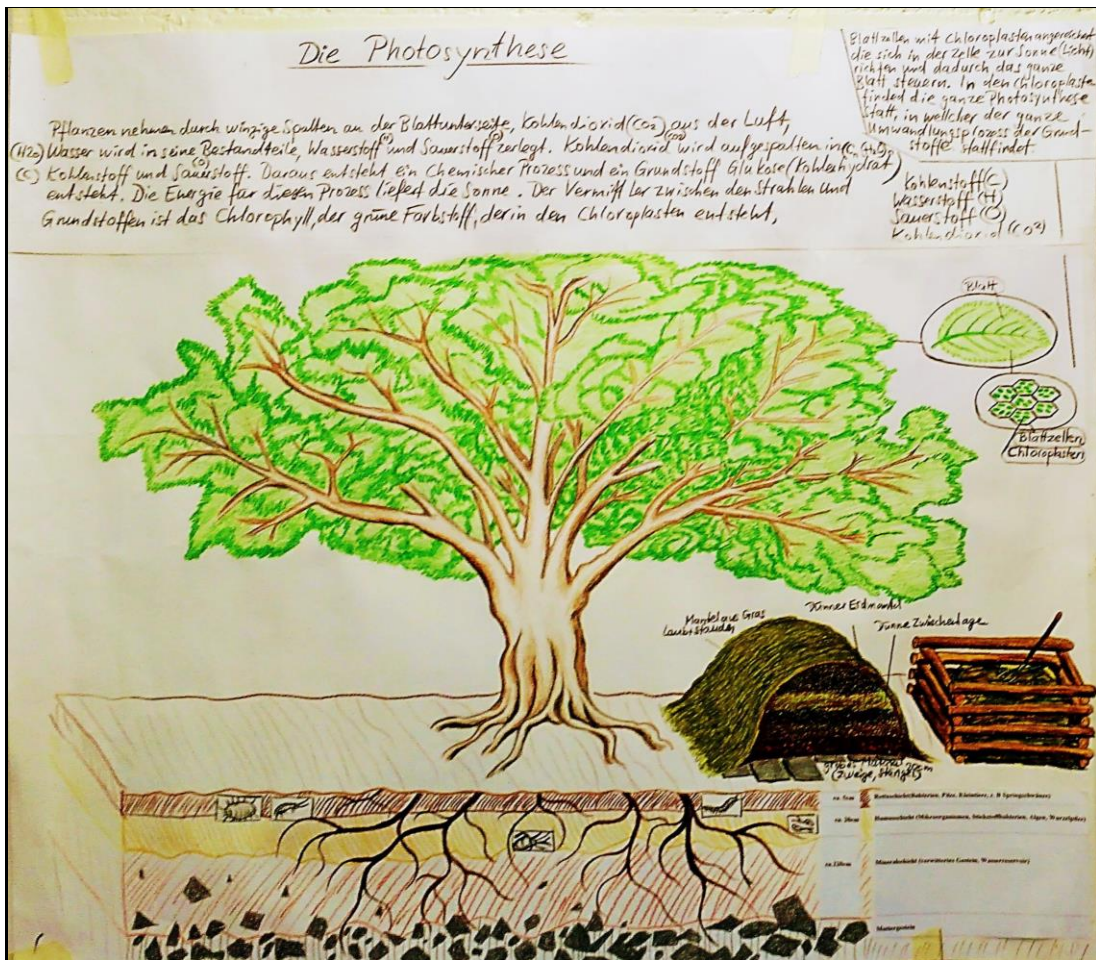 Die Photosynthese
Pflanzen nehmen durch winzige Spalten an der Blattunterseite, Kohlendioxid (CO2) aus der Luft,
(H2O) Wasser wird in seine Bestandteile, Wasserstoff (H) und Sauerstoff (O) zerlegt. Kohlendioxid (CO2) wird aufgespalten in
(C) Kohlenstoff und Sauerstoff (O). Daraus entsteht ein Chemischer Prozess und ein Grundstoff Glukose (Kohlehydrat)
entsteht. Die Energie für diesen Prozess liefert die Sonne. Der Vermittler zwischen den Strahlen und
Grundstoffen ist das Chlorophyll, der grüne Farbstoff, der in den Chloroplasten entsteht,
Blattzellen mit Chloroplasten angereichert
die sich in der Zelle zur Sonne (Licht)
richten und dadurch das ganze
Blatt steuern. In den Chloroplasten
findet die ganze Photosynthese
statt, in welcher der ganze
Umwandlungsprozess der Grund-
stoffe stattfindet
Kohlenstoff (C)
Wasserstoff (H)
Sauerstoff (O)
Kohlendioxid (CO2)
Blatt
Blattzellen
Chloroplasten
Mantel aus Gras
Laub+Stauden
Dünner Erdmantel
Dünne Zwischenlage
grobes Material
(Zweige, Stängel) 20cm
ca. 5cm
Rotteschicht (Bakterien, Pilze, Kleintiere, z. B Springschwänze)
ca. 20cm
Humusschicht (Mikroorganismen, Stickstoffbakterien, Algen, Wurzelpilze)
Mineralschicht (verwittertes Gestein, Wasserreservoir)
Muttergestein